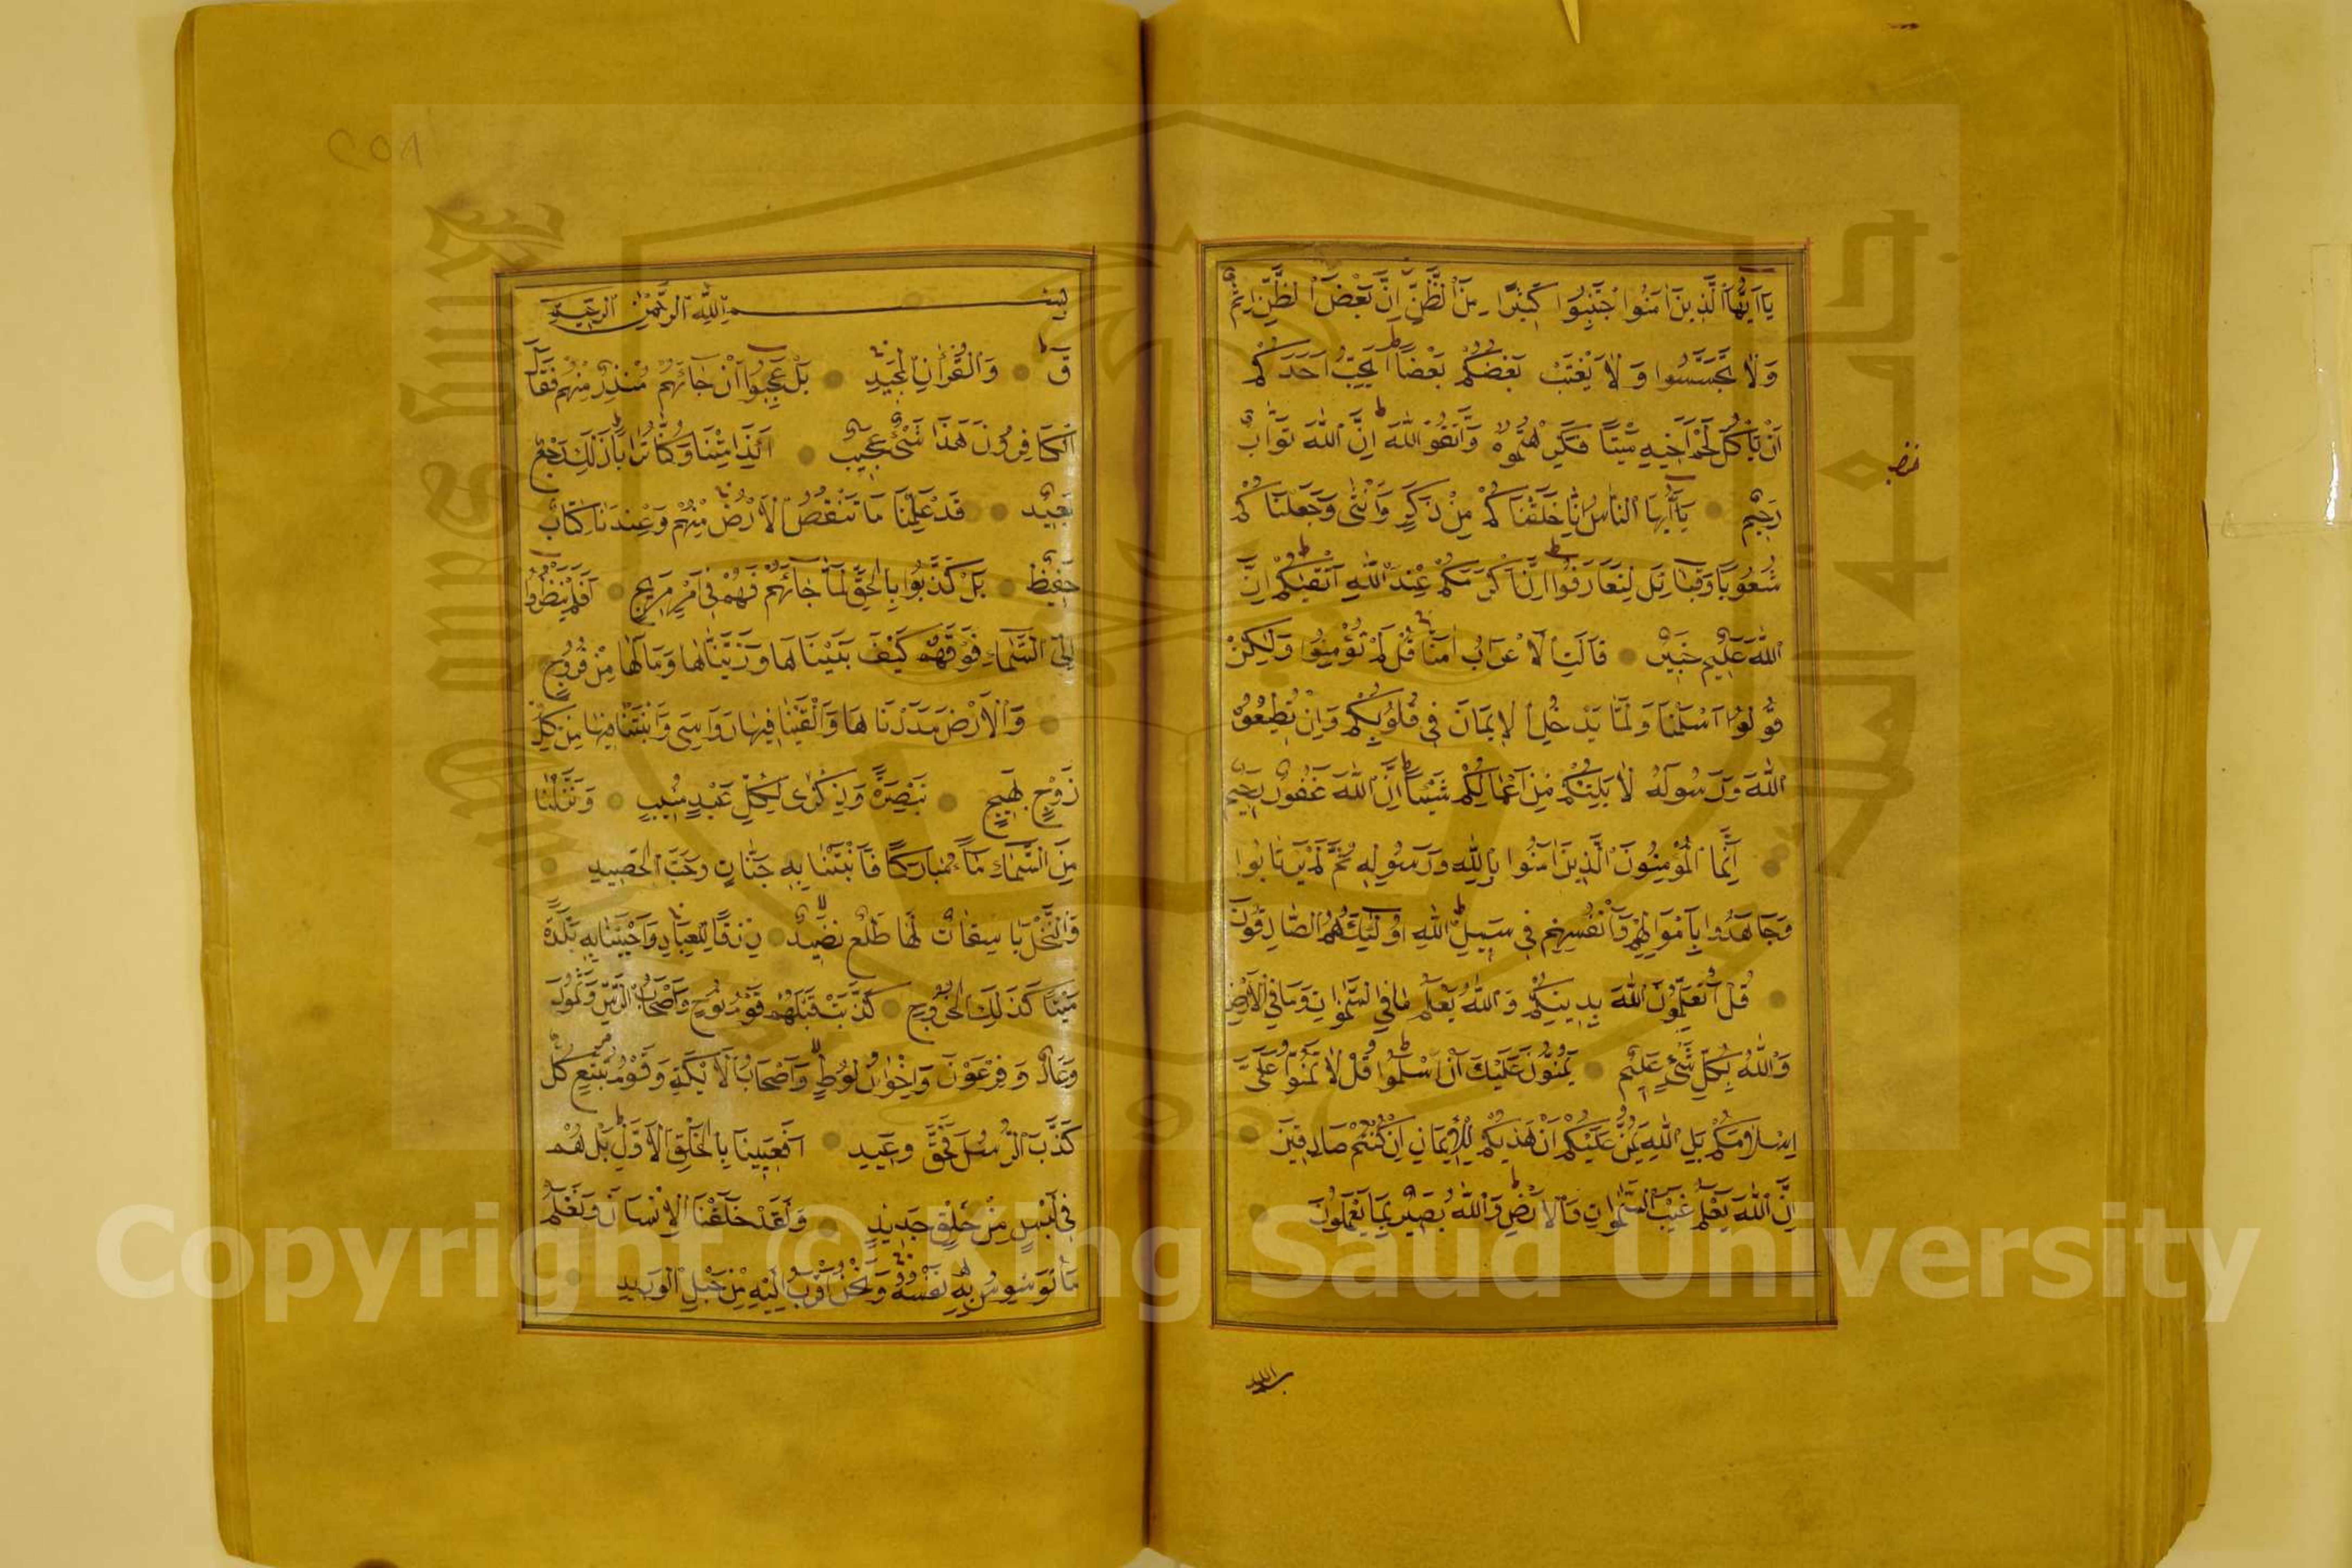 يَا أَيُّهَا الَّذِينَ آمَنُوا اجْتَنِبُوا كَثِيرًا مِنَ الظَّنِّ إِنَّ بَعْضَ الظَّنِّ إِثْمٌ
وَلَا تَجَسَّسُوا وَلَا يَغْتَبْ بَعْضُكُمْ بَعْضًا أَيُحِبُّ أَحَدُكُمْ
أَنْ يَأْكُلَ لَحْمَ أَخِيهِ مَيْتًا فَكَرِهْتُمُوهُ وَاتَّقُوا اللَّهَ إِنَّ اللَّهَ تَوَّابٌ
رَحِيمٌ يَا أَيُّهَا النَّاسُ إِنَّا خَلَقْنَاكُمْ مِنْ ذَكَرٍ وَأُنْثَى وَجَعَلْنَاكُمْ
شُعُوبًا وَقَبَائِلَ لِتَعَارَفُوا إِنَّ أَكْرَمَكُمْ عِنْدَ اللَّهِ أَتْقَاكُمْ إِنَّ
اللَّهَ عَلِيمٌ خَبِيرٌ قَالَتِ الْأَعْرَابُ آمَنَّا قُلْ لَمْ تُؤْمِنُوا وَلَكِنْ
قُولُوا أَسْلَمْنَا وَلَمَّا يَدْخُلِ الْإِيمَانُ فِي قُلُوبِكُمْ وَإِنْ تُطِيعُوا
اللَّهَ وَرَسُولَهُ لَا يَلِتْكُمْ مِنْ أَعْمَالِكُمْ شَيْئًا إِنَّ اللَّهَ غَفُورٌ رَحِيمٌ
إِنَّمَا الْمُؤْمِنُونَ الَّذِينَ آمَنُوا بِاللَّهِ وَرَسُولِهِ ثُمَّ لَمْ يَرْتَابُوا
وَجَاهَدُوا بِأَمْوَالِهِمْ وَأَنْفُسِهِمْ فِي سَبِيلِ اللَّهِ أُولَئِكَ هُمُ الصَّادِقُونَ
قُلْ أَتُعَلِّمُونَ اللَّهَ بِدِينِكُمْ وَاللَّهُ يَعْلَمُ مَا فِي السَّمَوَاتِ وَمَا فِي الْأَرْضِ
وَاللَّهُ بِكُلِّ شَيْءٍ عَلِيمٌ يَمُنُّونَ عَلَيْكَ أَنْ أَسْلَمُوا قُلْ لَا تَمُنُّوا عَلَيَّ
إِسْلَامَكُمْ بَلِ اللَّهُ يَمُنُّ عَلَيْكُمْ أَنْ هَدَيكُمْ لِلْإِيمَانِ إِنْ كُنْتُمْ صَادِقِينَ
إِنَّ اللَّهَ يَعْلَمُ غَيْبَ السَّمَوَاتِ وَالْأَرْضِ وَاللَّهُ بَصِيرٌ بِمَا يَعْمَلُونَ
بِسْمِ اللَّهِ الرَّحْمَنِ الرَّحِيمِ
ق وَالْقُرْآنِ الْمَجِيدِ بَلْ عَجِبُوا أَنْ جَاءَهُمْ مُنْذِرٌ مِنْهُمْ فَقَالَ
الْكَافِرُونَ هَذَا شَيْءٌ عَجِيبٌ أَئِذَا مِتْنَا وَكُنَّا تُرَابًا ذَلِكَ رَجْعٌ
بَعِيدٌ قَدْ عَلِمْنَا مَا تَنْقُصُ الْأَرْضُ مِنْهُمْ وَعِنْدَنَا كِتَابٌ
حَفِيظٌ بَلْ كَذَّبُوا بِالْحَقِّ لَمَّا جَاءَهُمْ فَهُمْ فِي أَمْرٍ مَرِيجٍ أَفَلَمْ يَنْظُرُوا
إِلَى السَّمَاءِ فَوْقَهُمْ كَيْفَ بَنَيْنَاهَا وَزَيَّنَّاهَا وَمَا لَهَا مِنْ فُرُوجٍ
وَالْأَرْضَ مَدَدْنَاهَا وَأَلْقَيْنَا فِيهَا رَوَاسِيَ وَأَنْبَتْنَا فِيهَا مِنْ كُلِّ
زَوْجٍ بَهِيجٍ تَبْصِرَةً وَذِكْرَى لِكُلِّ عَبْدٍ مُنِيبٍ وَنَزَّلْنَا
مِنَ السَّمَاءِ مَاءً مُبَارَكًا فَأَنْبَتْنَا بِهِ جَنَّاتٍ وَحَبَّ الْحَصِيدِ
وَالنَّخْلَ بَاسِقَاتٍ لَهَا طَلْعٌ نَضِيدٌ رِزْقًا لِلْعِبَادِ وَأَحْيَيْنَا بِهِ بَلْدَةً
مَيْتًا كَذَلِكَ الْخُرُوجُ كَذَّبَتْ قَبْلَهُمْ قَوْمُ نُوحٍ وَأَصْحَابُ الرَّسِّ وَثَمُودُ
وَعَادٌ وَفِرْعَوْنُ وَإِخْوَانُ لُوطٍ وَأَصْحَابُ الْأَيْكَةِ وَقَوْمُ تُبَّعٍ كُلٌّ
كَذَّبَ الرُّسُلَ فَحَقَّ وَعِيدِ أَفَعَيِينَا بِالْخَلْقِ الْأَوَّلِ بَلْ هُمْ
فِي لَبْسٍ مِنْ خَلْقٍ جَدِيدٍ وَلَقَدْ خَلَقْنَا الْإِنْسَانَ وَنَعْلَمُ
مَا تُوَسْوِسُ بِهِ نَفْسُهُ وَنَحْنُ أَقْرَبُ إِلَيْهِ مِنْ حَبْلِ الْوَرِيدِ
Copyright © King Saud University